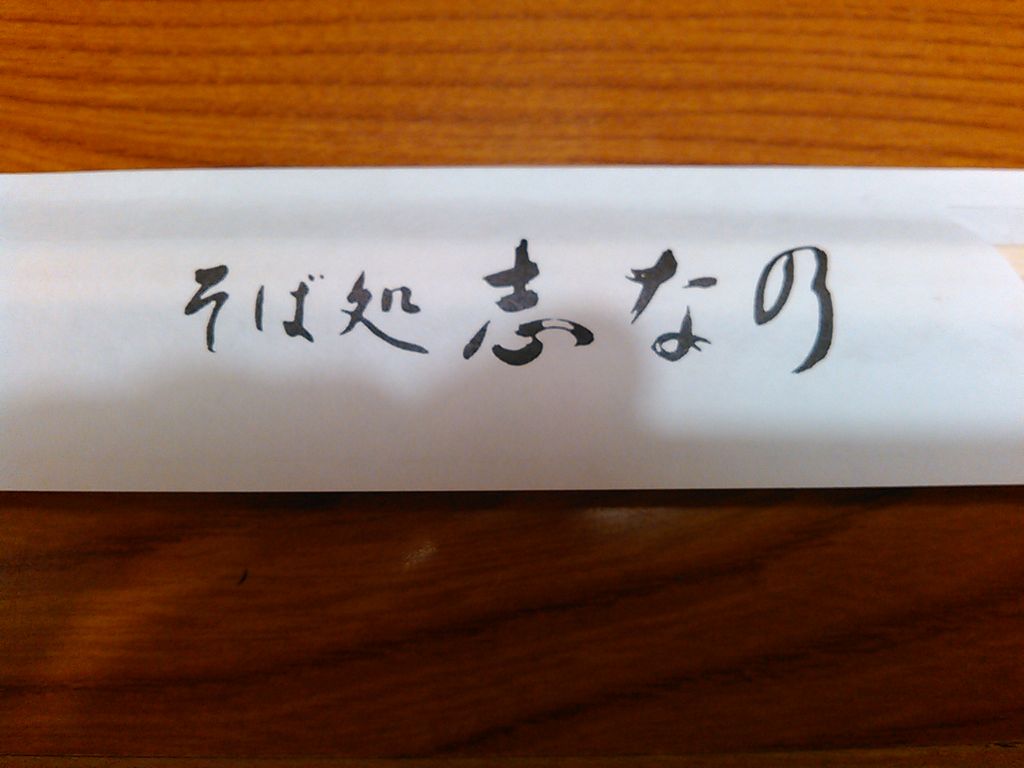 そば処 志なの